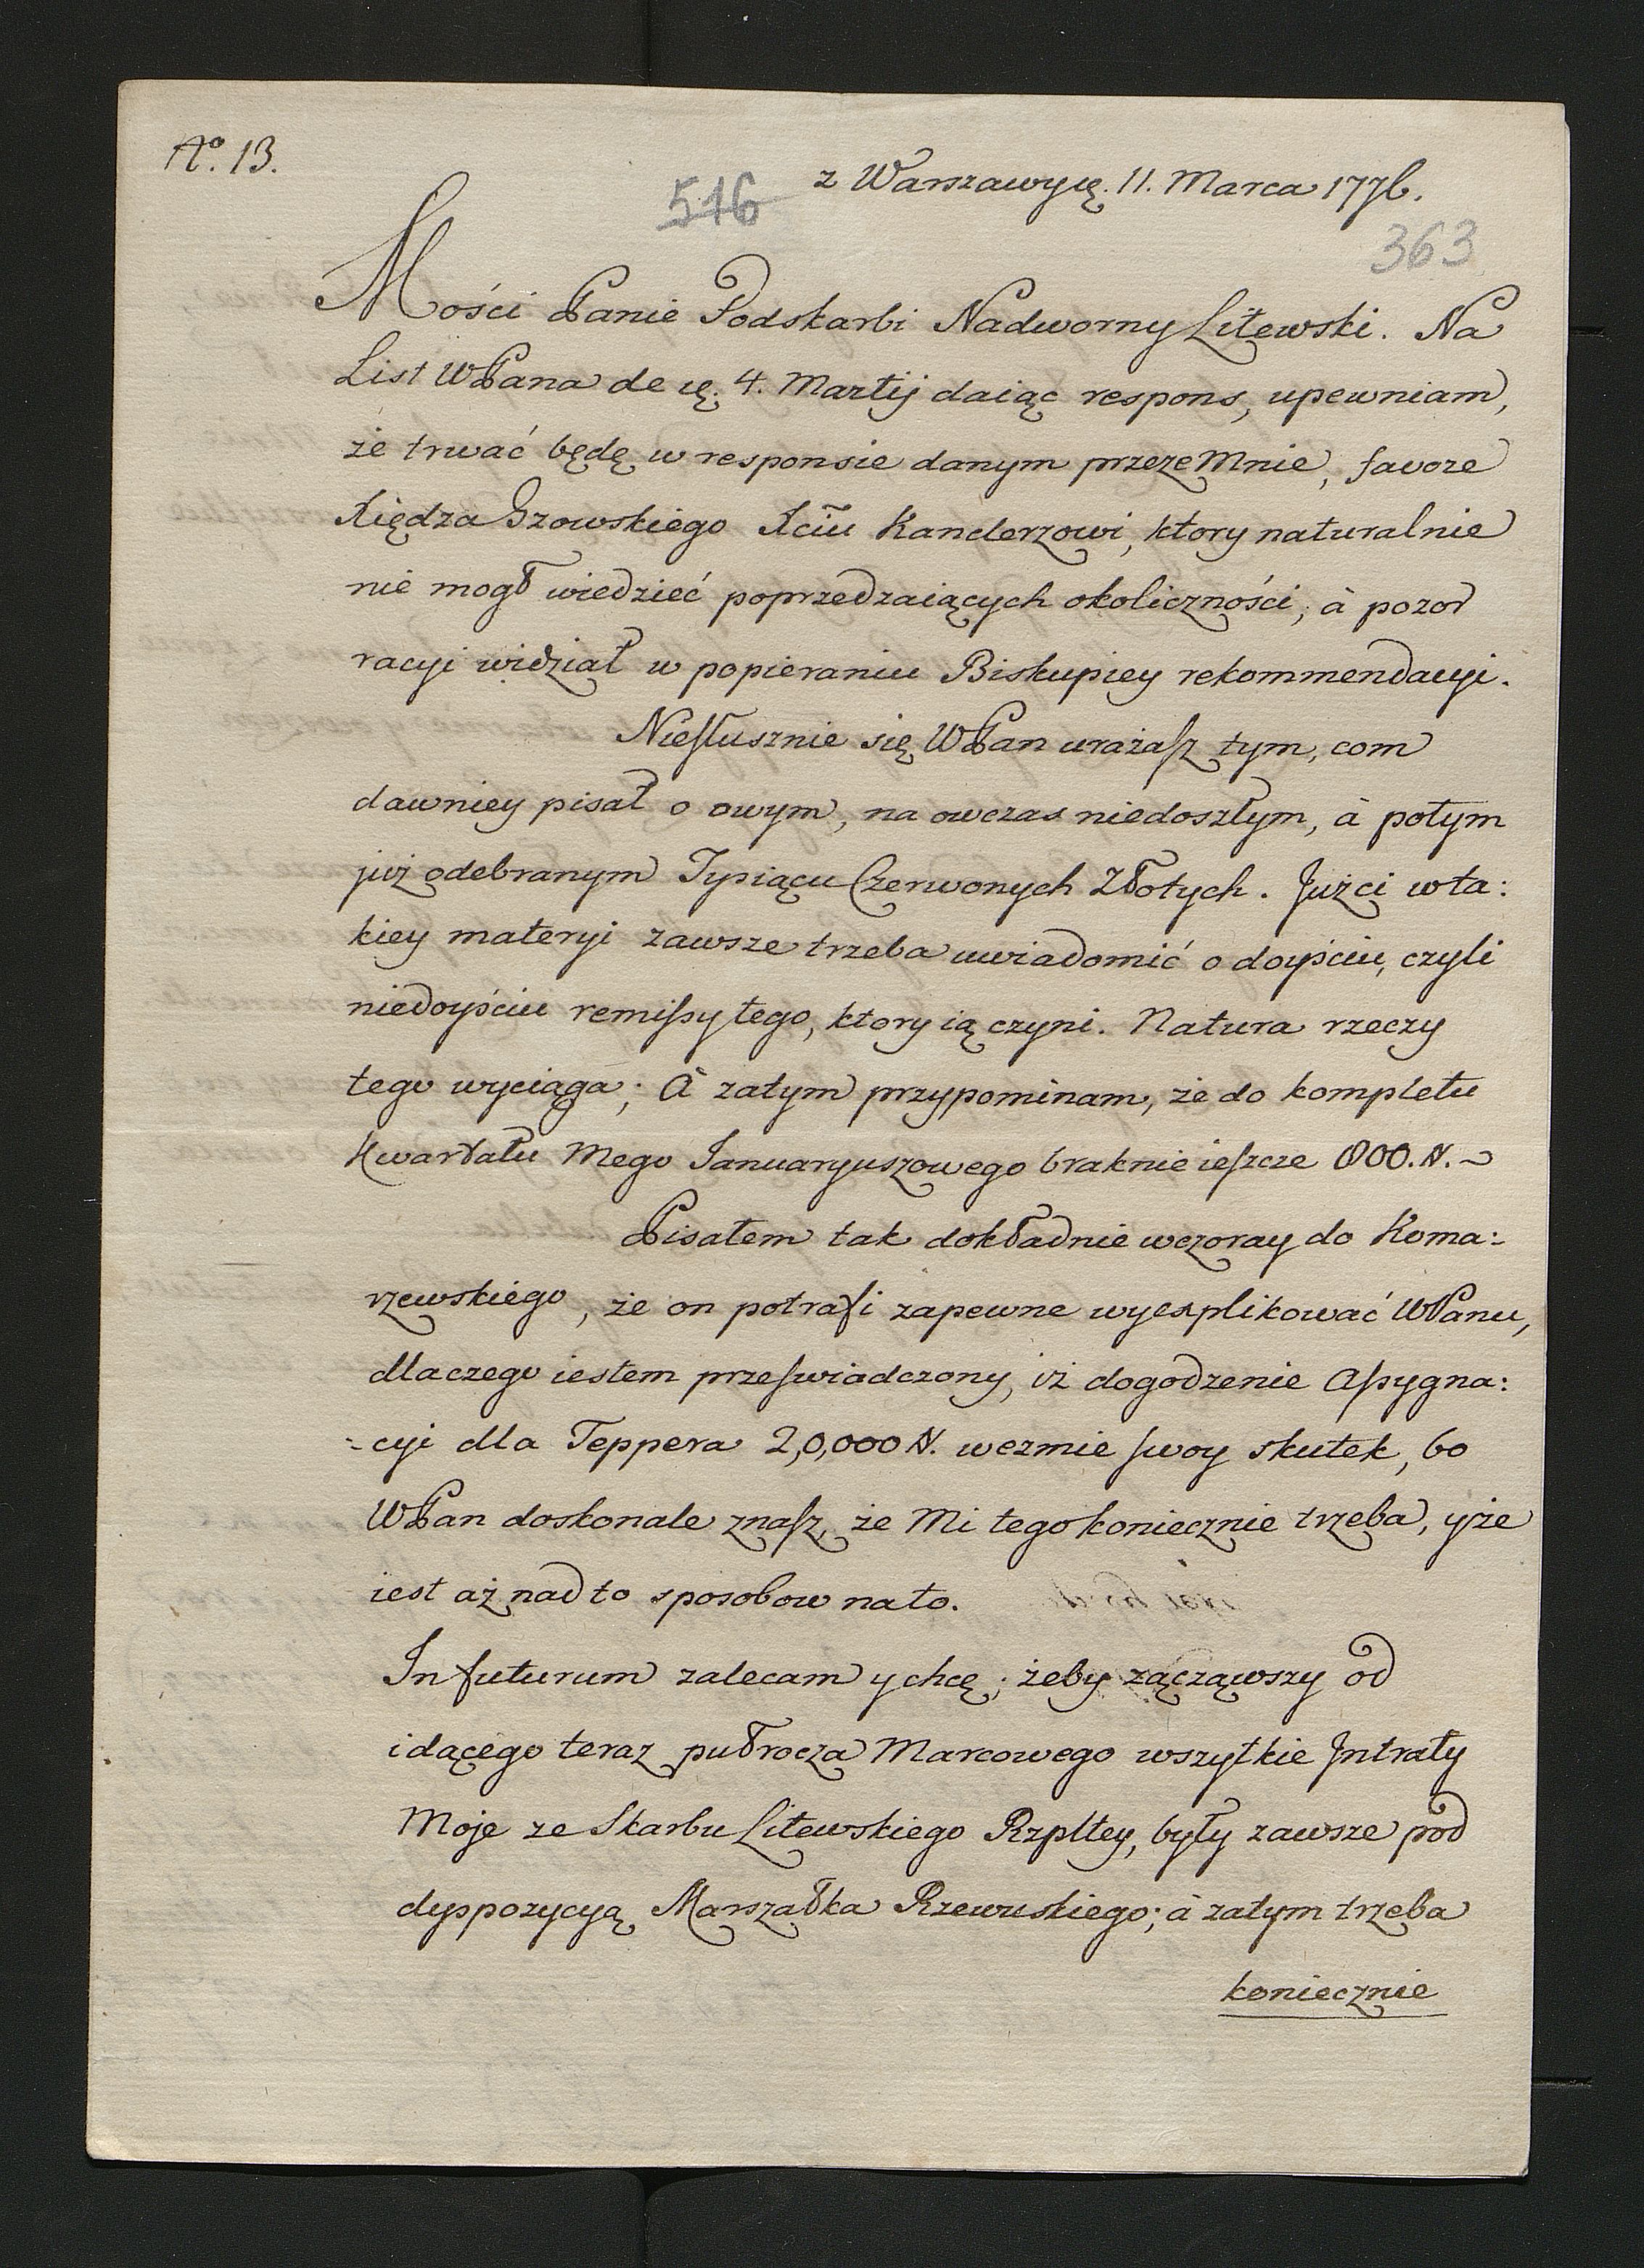 No. 13.
z Warszawy ię. 11. Marca 1776.
516
363
Mości Panie Podskarbi Nadworny Litewski. Na
List WPana de ię. 4. Martij daiąc respons, upewniam,
że trwać będę w responsie danym przezemnie, favore
Xiędza Szowskiego Xciu Kanclerzowi, ktory naturalnie
nie mogł wiedzieć poprzedzaiących okoliczności; à pozor
racyi widział w popieraniu Biskupiey rekommendacyi.
Niesłusznie się WPan urażasz tym, com
dawniey pisał o owym, na owczas niedoszłym, à potym
już odebranym Tysiącu Czerwonych Złotych. Jużci w ta:
kiey materyi zawsze trzeba uwiadomić o doyściu, czyli
niedoyściu remissy tego, ktory ią czyni. Natura rzeczy
tego wyciąga; à zatym przypominam, że do kompletu
Kwartału Mego Januaryuszowego braknie ieszcze 800. #.
Pisałem tak dokładnie wczoray do Koma:
rzewskiego, że on potrafi zapewne wyexplikować WPanu,
dlaczego iestem przeswiadczony, iż dogodzenie Assygna:
:cyi dla Teppera 20,000 #. wezmie swoy skutek, bo
WPan doskonale znasz, że Mi tego koniecznie trzeba, y że
iest aż nad to sposobow na to.
In futurum zalecam y chcę; żeby zacząwszy od
idącego teraz pułrocza Marcowego wszytkie Intraty
Moje ze Skarbu Litewskiego Rzpltey, były zawsze pod
dyspozycyą Marszałka Rzewuskiego; à zatym trzeba
koniecznie